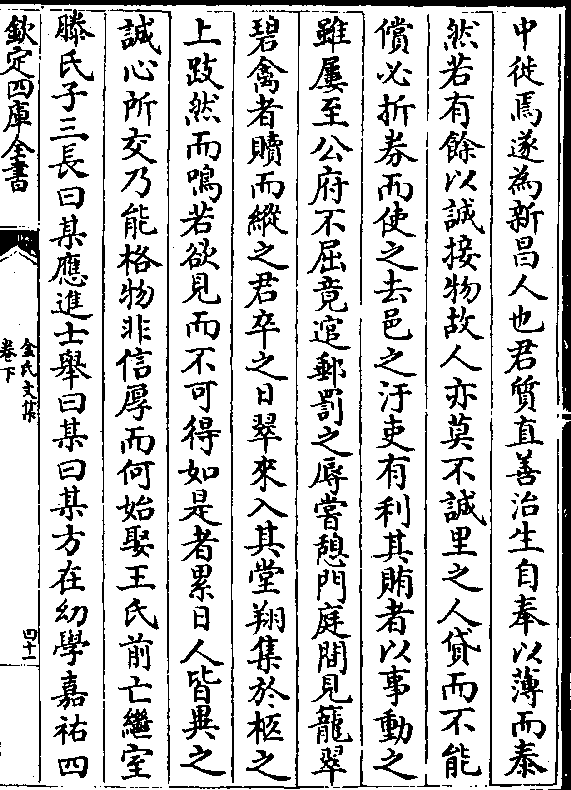 中徙焉遂為新昌人也君質直善治生自奉以薄而泰
然若有餘以誠接物故人亦莫不誠里之人貸而不能
償必折券而使之去邑之汙吏有利其賄者以事動之
雖屢至公府不屈竟逭郵罰之辱嘗憩門庭間見籠翠
碧禽者贖而縱之君卒之日翠來入其堂翔集於柩之
上跂然而鳴若欲見而不可得如是者累日人皆異之
誠心所交乃能格物非信厚而何始娶王氏前亡繼室
滕氏子三長曰某應進士舉曰某曰某方在幼學嘉祐四
欽定四庫全書
金氏文集
卷下
四十一